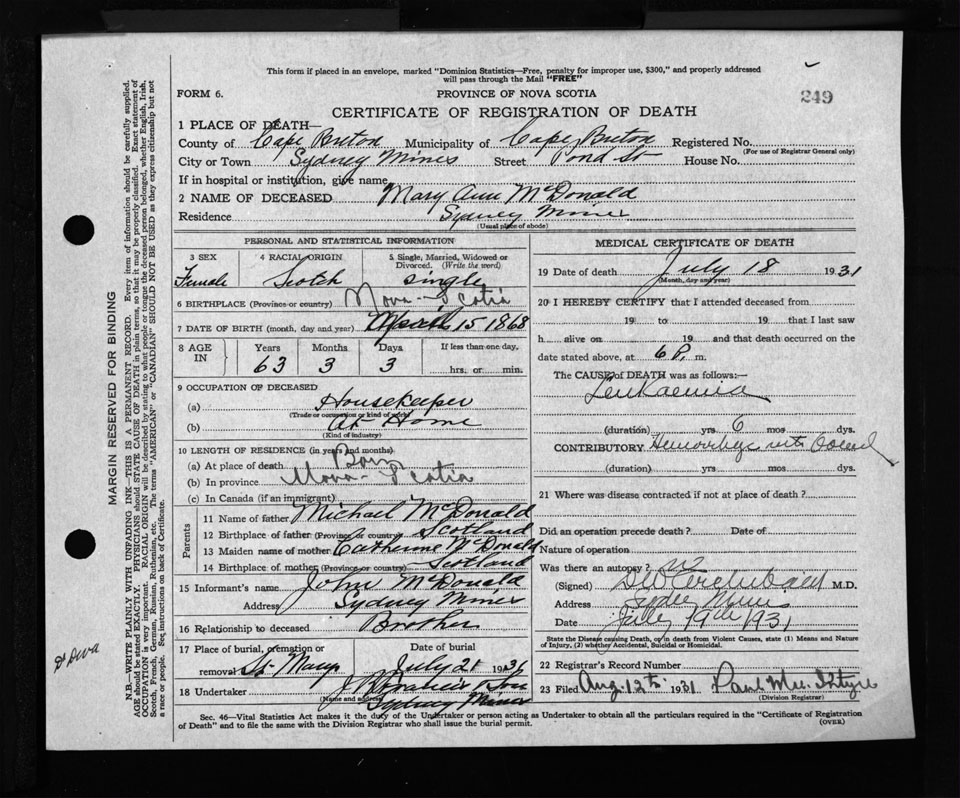 This form if placed in an envelope, marked "Dominion Statistics—Free, penalty for improper use, $300," and properly addressed
will pass through the Mail "FREE"
FORM 6.
PROVINCE OF NOVA SCOTIA
249
CERTIFICATE OF REGISTRATION OF DEATH
1 PLACE OF DEATH—
County of Cape Breton Municipality of Cape Breton Registered No.
(For use of Registrar General only)
City or Town Sydney Mines Street Pond St House No.
If in hospital or institution, give name
2 NAME OF DECEASED Mary Ann McDonald
Residence Sydney Mines
(Usual place of abode)
PERSONAL AND STATISTICAL INFORMATION
3 SEX 4 RACIAL ORIGIN 5 Single, Married, Widowed or
Divorced. (Write the word)
Female Scotch Single
6 BIRTHPLACE (Province or country) Nova-Scotia
7 DATE OF BIRTH (month, day and year) April 15 1868
8 AGE IN Years Months Days If less than one day.
63 3 3 hrs. or min.
9 OCCUPATION OF DECEASED
(a) Housekeeper
(Trade or occupation or kind of work)
(b) At Home
(Kind of industry)
10 LENGTH OF RESIDENCE (in years and months)
(a) At place of death Born
(b) In province Nova-Scotia
(c) In Canada (if an immigrant)
Parents
11 Name of father Michael McDonald
12 Birthplace of father (Province or country) Scotland
13 Maiden name of mother Catherine McDonald
14 Birthplace of mother (Province or country) Scotland
15 Informant's name John McDonald
Address Sydney Mines
16 Relationship to deceased Brother
17 Place of burial, cremation or Date of burial
removal St. Marys July 21 1931
18 Undertaker & Son
(Name and address)
Sydney Mines
MEDICAL CERTIFICATE OF DEATH
19 Date of death July 18 1931
(Month, day and year)
20 I HEREBY CERTIFY that I attended deceased from
19 to 19 that I last saw
h alive on 19 and that death occurred on the
date stated above, at 6 P. m.
The CAUSE of DEATH was as follows:—
Leukaemia
(duration) yrs 6 mos dys.
CONTRIBUTORY Hemorrhage into
(duration) yrs mos dys.
21 Where was disease contracted if not at place of death?
Did an operation precede death? Date of
Nature of operation
Was there an autopsy? no
(Signed) Archibald M.D.
Address Sydney Mines
Date July 19th 1931
State the Disease causing Death, or in death from Violent Causes, state (1) Means and Nature
of Injury, (2) whether Accidental, Suicidal or Homicidal.
22 Registrar's Record Number
23 Filed Aug. 12th 1931
(Division Registrar)
Sec. 46—Vital Statistics Act makes it the duty of the Undertaker or person acting as Undertaker to obtain all the particulars required in the "Certificate of Registration
of Death" and to file the same with the Division Registrar who shall issue the burial permit. (OVER)
MARGIN RESERVED FOR BINDING
N.B.—WRITE PLAINLY WITH UNFADING INK—THIS IS A PERMANENT RECORD. Every item of information should be carefully supplied.
AGE should be stated EXACTLY. PHYSICIANS should STATE CAUSE OF DEATH in plain terms, so that it may be properly classified. Exact statement of
OCCUPATION is very important. RACIAL ORIGIN will be described by stating to what people or tongue the deceased person belonged, whether English, Irish,
Scotch, French, German, Russian, Ruthenian, etc. The terms "AMERICAN" or "CANADIAN" SHOULD NOT BE USED as they express citizenship but not
a race or people. See instructions on back of Certificate.